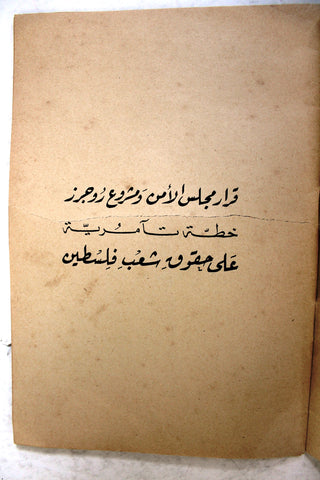 قرار مجلس الأمن ومشروع روجرز
خطة تآمريّة
على حقوق شعب فلسطين